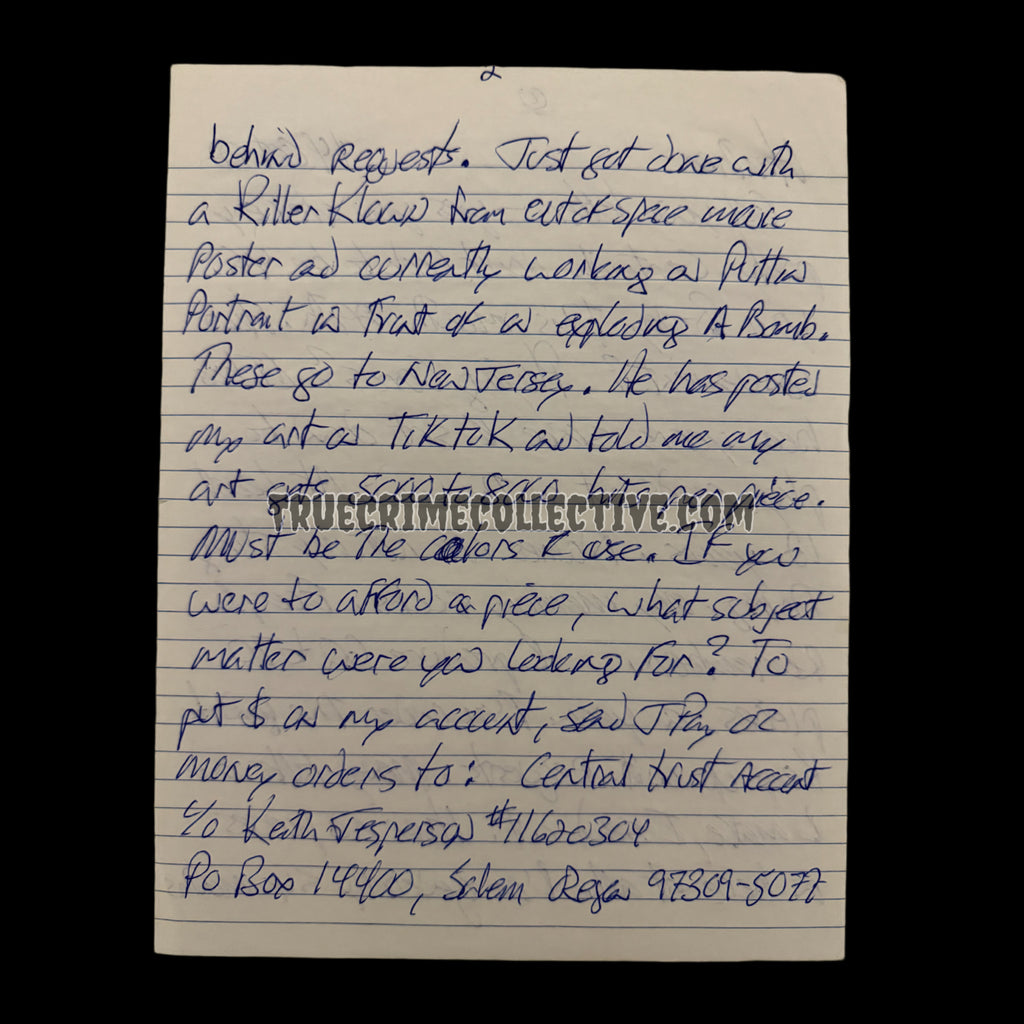 2
behind requests. Just got done with
a Killer Klown from out of space movie
Poster and currently working on Puttin
Portrait in Front of an exploding A Bomb.
These go to New Jersey. He has posted
my art on TikTok and told me my
art gets to hits per piece.
TRUECRIMECOLLECTIVE.COM
Must be the colors I use. If you
were to afford a piece, what subject
matter were you looking for? To
put $ on my account, send JPay or
money orders to: Central trust Account
c/o Keith Jesperson #11620304
Po Box 14400, Salem Oregon 97309-5077